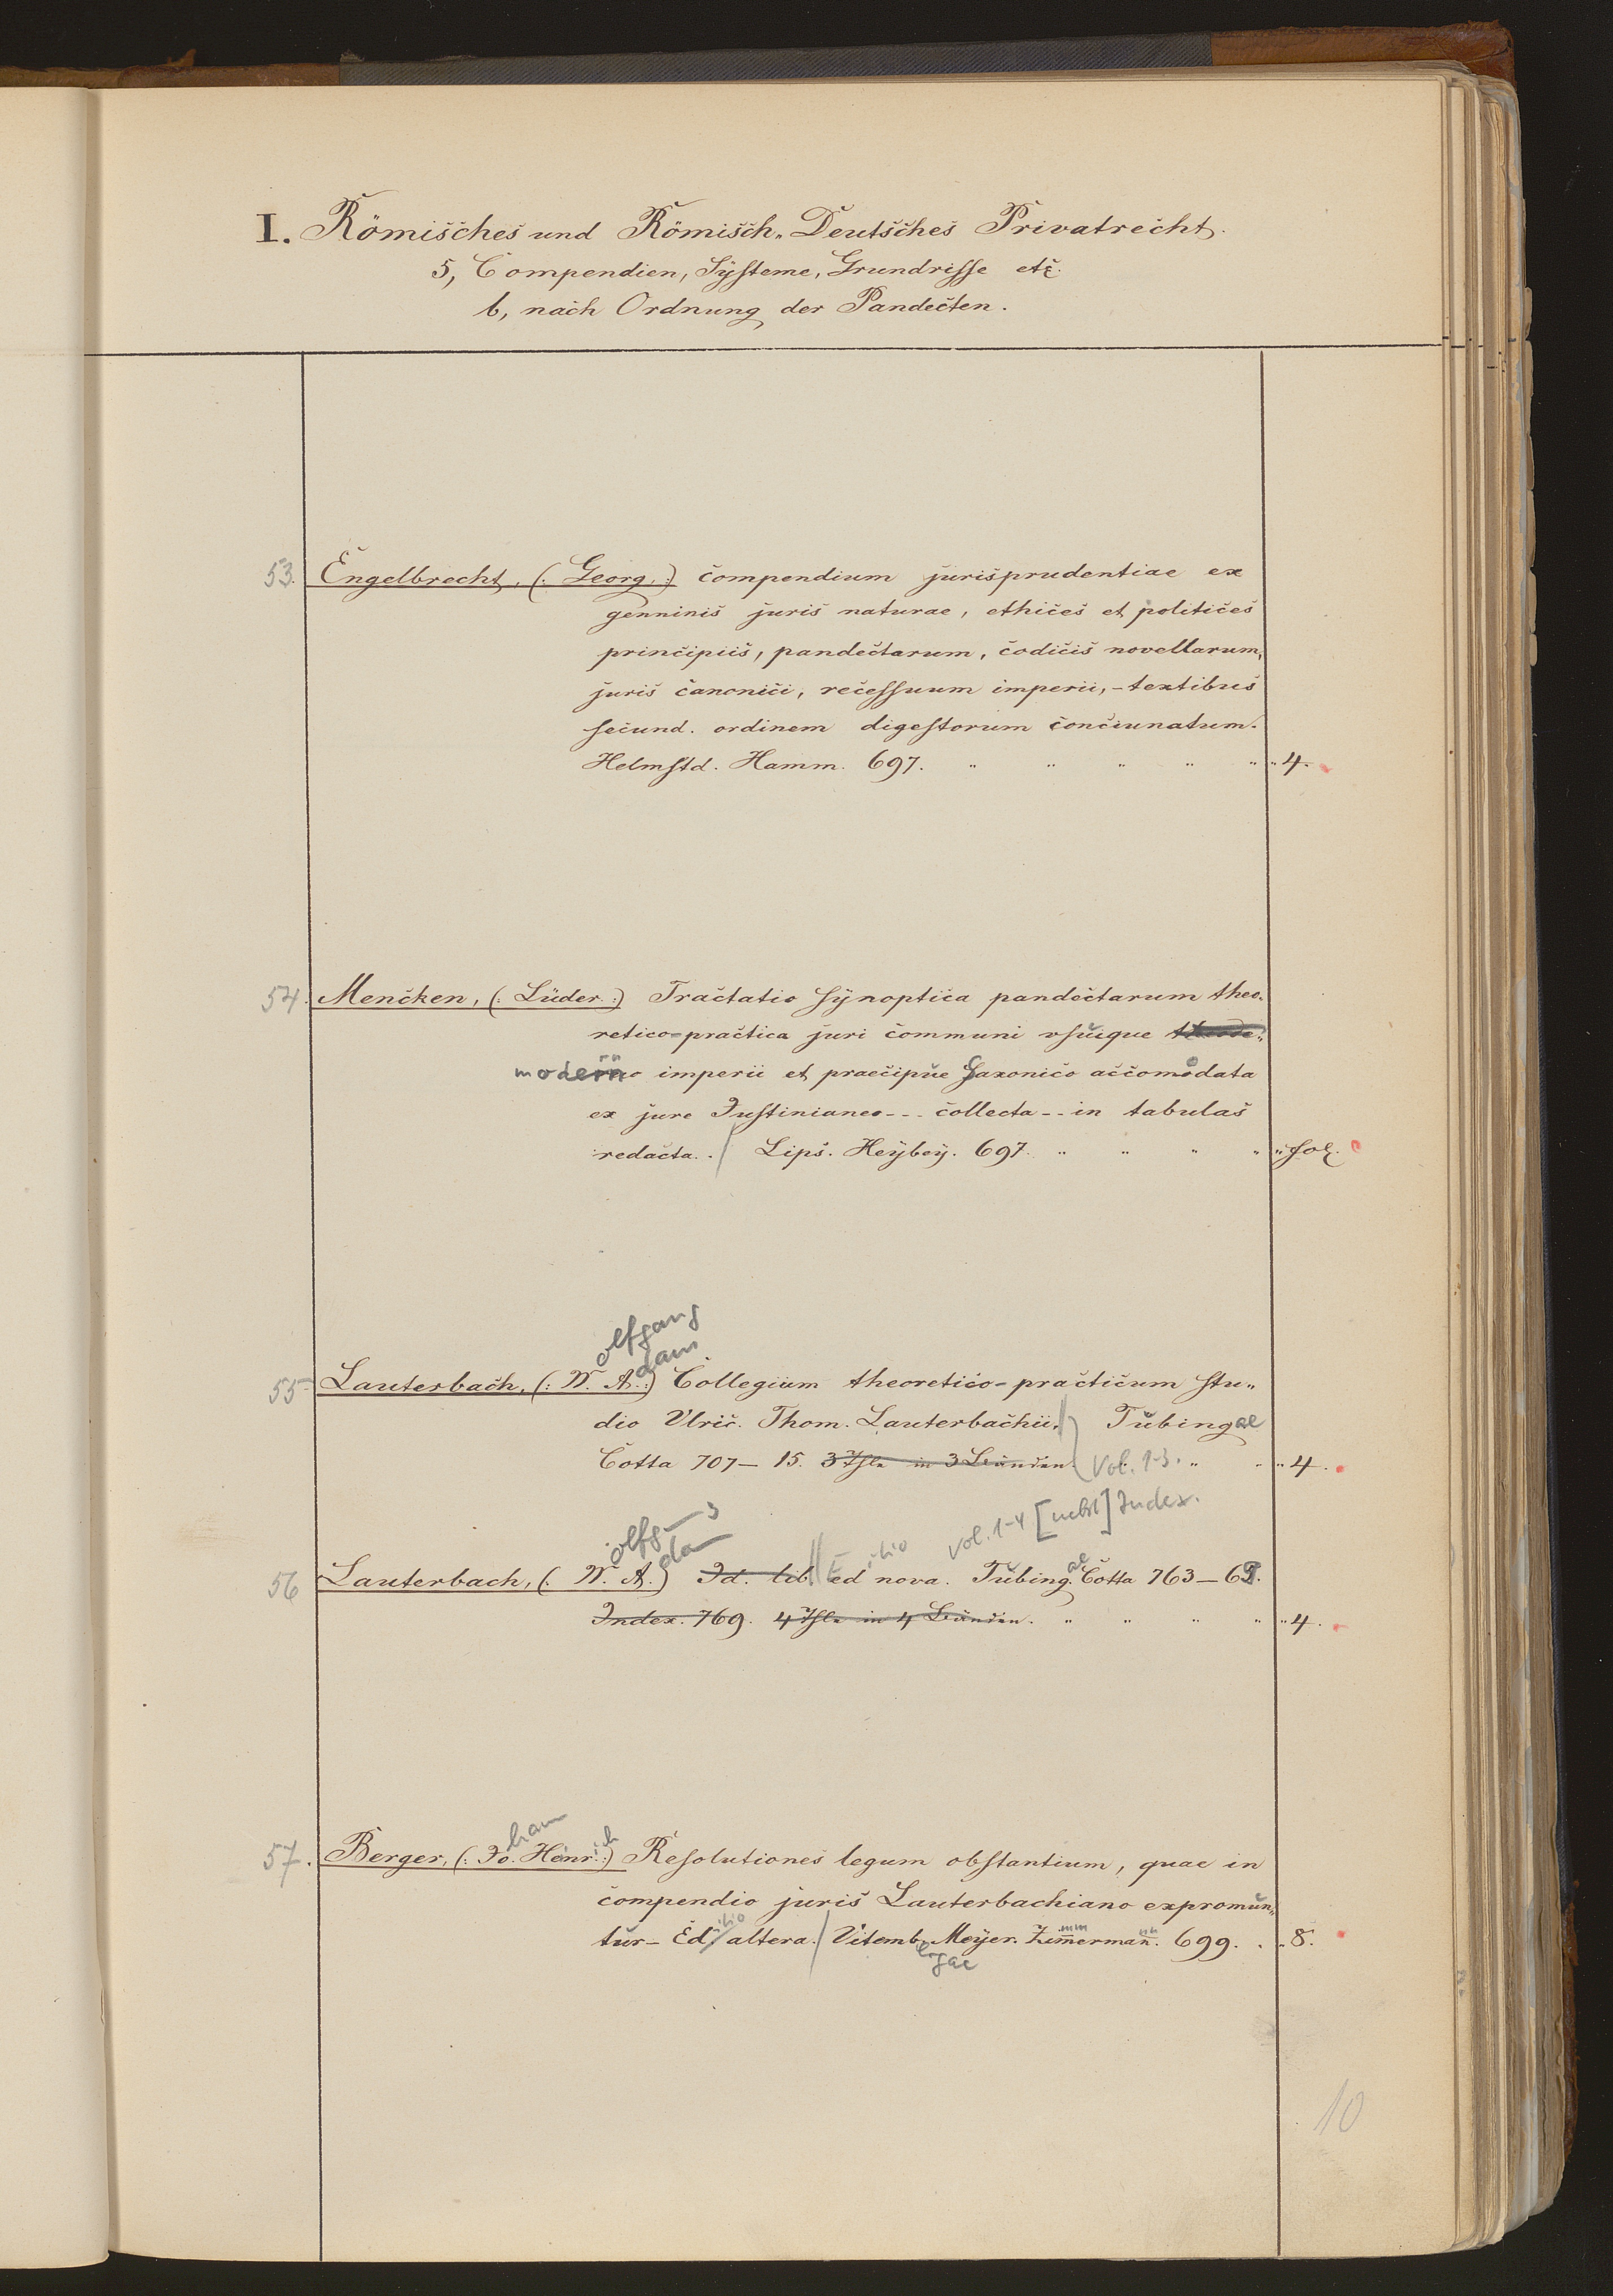 I. Römisches und Römisch-Deutsches Privatrecht.
5, Compendien, Systeme, Grundrisse etc.
b, nach Ordnung der Pandecten.
53. Engelbrecht, (: Georg. :) compendium jurisprudentiae ex
genninis juris naturae, ethices et politices
principiis, pandectarum, codicis novellarum,
juris canonici, recessuum imperii, - textibus
secund. ordinem digestorum conciunatum.
Helmstd. Hamm. 697. " " " " " " 4.
54. Mencken, (: Lüder. :) Tractatio synoptica pandectarum theo-
retico-practica juri communi usuque
moderno imperii et praecipue Saxonico accomodata
ex jure Justinianeo - - - collecta - - in tabulas
redacta. / Lips. Heybey. 697. " " " " " fol.
olfgang
dam
55 Lauterbach, (: W. A. :) Collegium theoretico-practicum stu-
dio Ulric. Thom. Lauterbachii. Tubingae
Cotta 707 - 15. 3 Thle in 3 Bänden. Vol. 1-3. " " " 4.
olfg 3 vol. 1-4 [nebst] Index.
da itio ae
56 Lauterbach, (: W. A. :) Id. lib. // Ed nova. Tubing. Cotta 763 - 69.
Index. 769. 4 Thle in 4 Bänden. " " " " " 4.
hann h
57. Berger, (: Jo. Henr. :) Resolutiones legum obstantium, quae in
compendio juris Lauterbachiano expromun-
tur - Ed itio altera. / Vitemb. Meyer. Zimmermann. 699. . " 8.
ergae
10